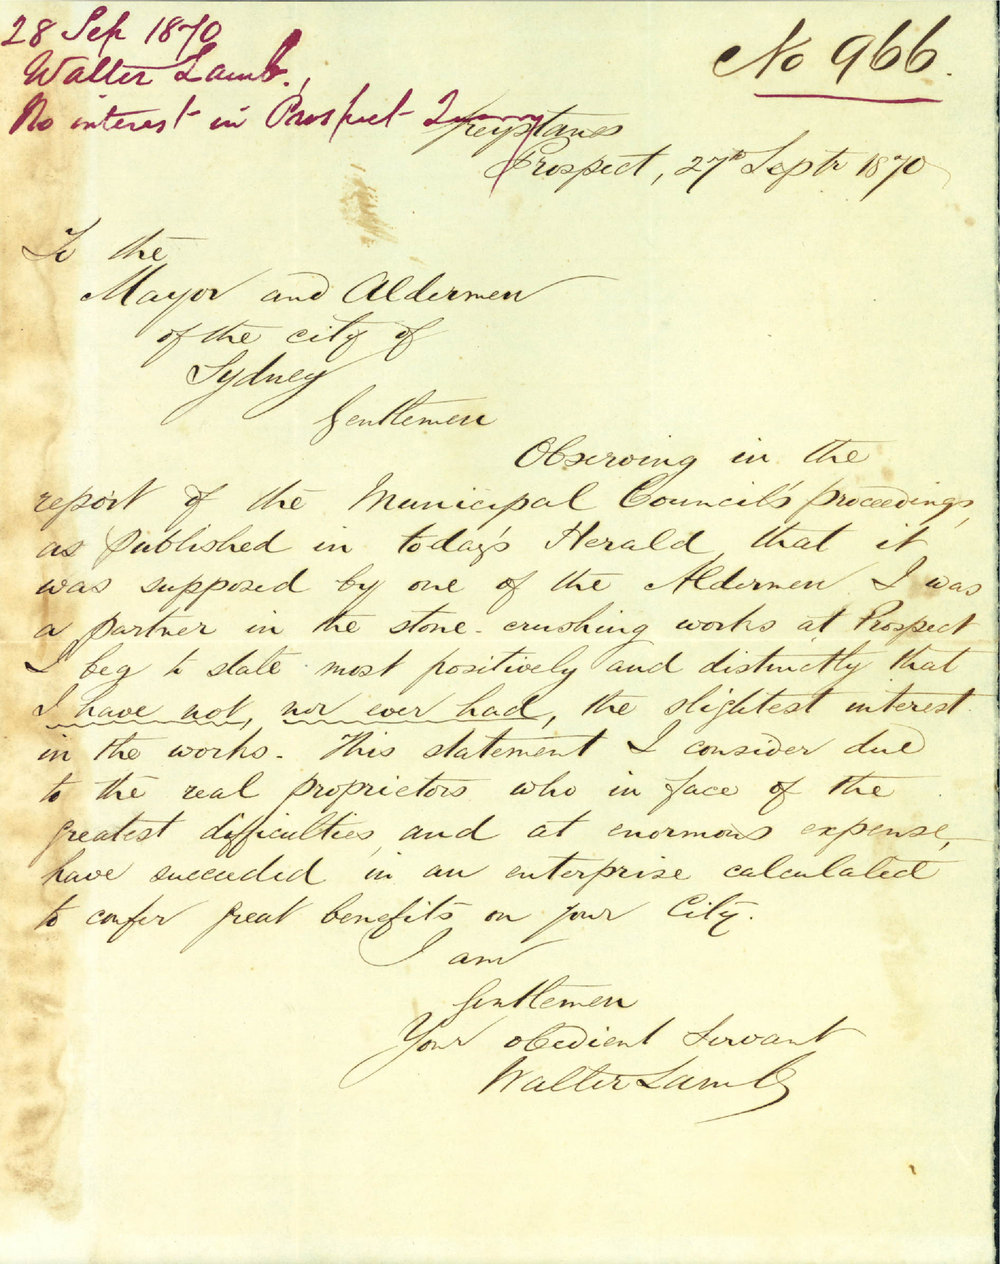 28 Sep 1870
Walter Lamb,
No interest in Prospect Quarry
No 966.
Greystanes
Prospect, 27th Septr 1870
To the
Mayor and Aldermen
of the city of
Sydney
Gentlemen
Observing in the
report of the Municipal Council's proceedings,
as published in today's Herald, that it
was supposed by one of the Aldermen I was
a partner in the stone-crushing works at Prospect
I beg to state most positively and distinctly that
I have not, nor ever had, the slightest interest
in the works. This statement I consider due
to the real proprietors who in face of the
greatest difficulties, and at enormous expense,
have succeeded in an enterprise calculated
to confer great benefits on your City.
I am
Gentlemen
Your obedient Servant
Walter Lamb